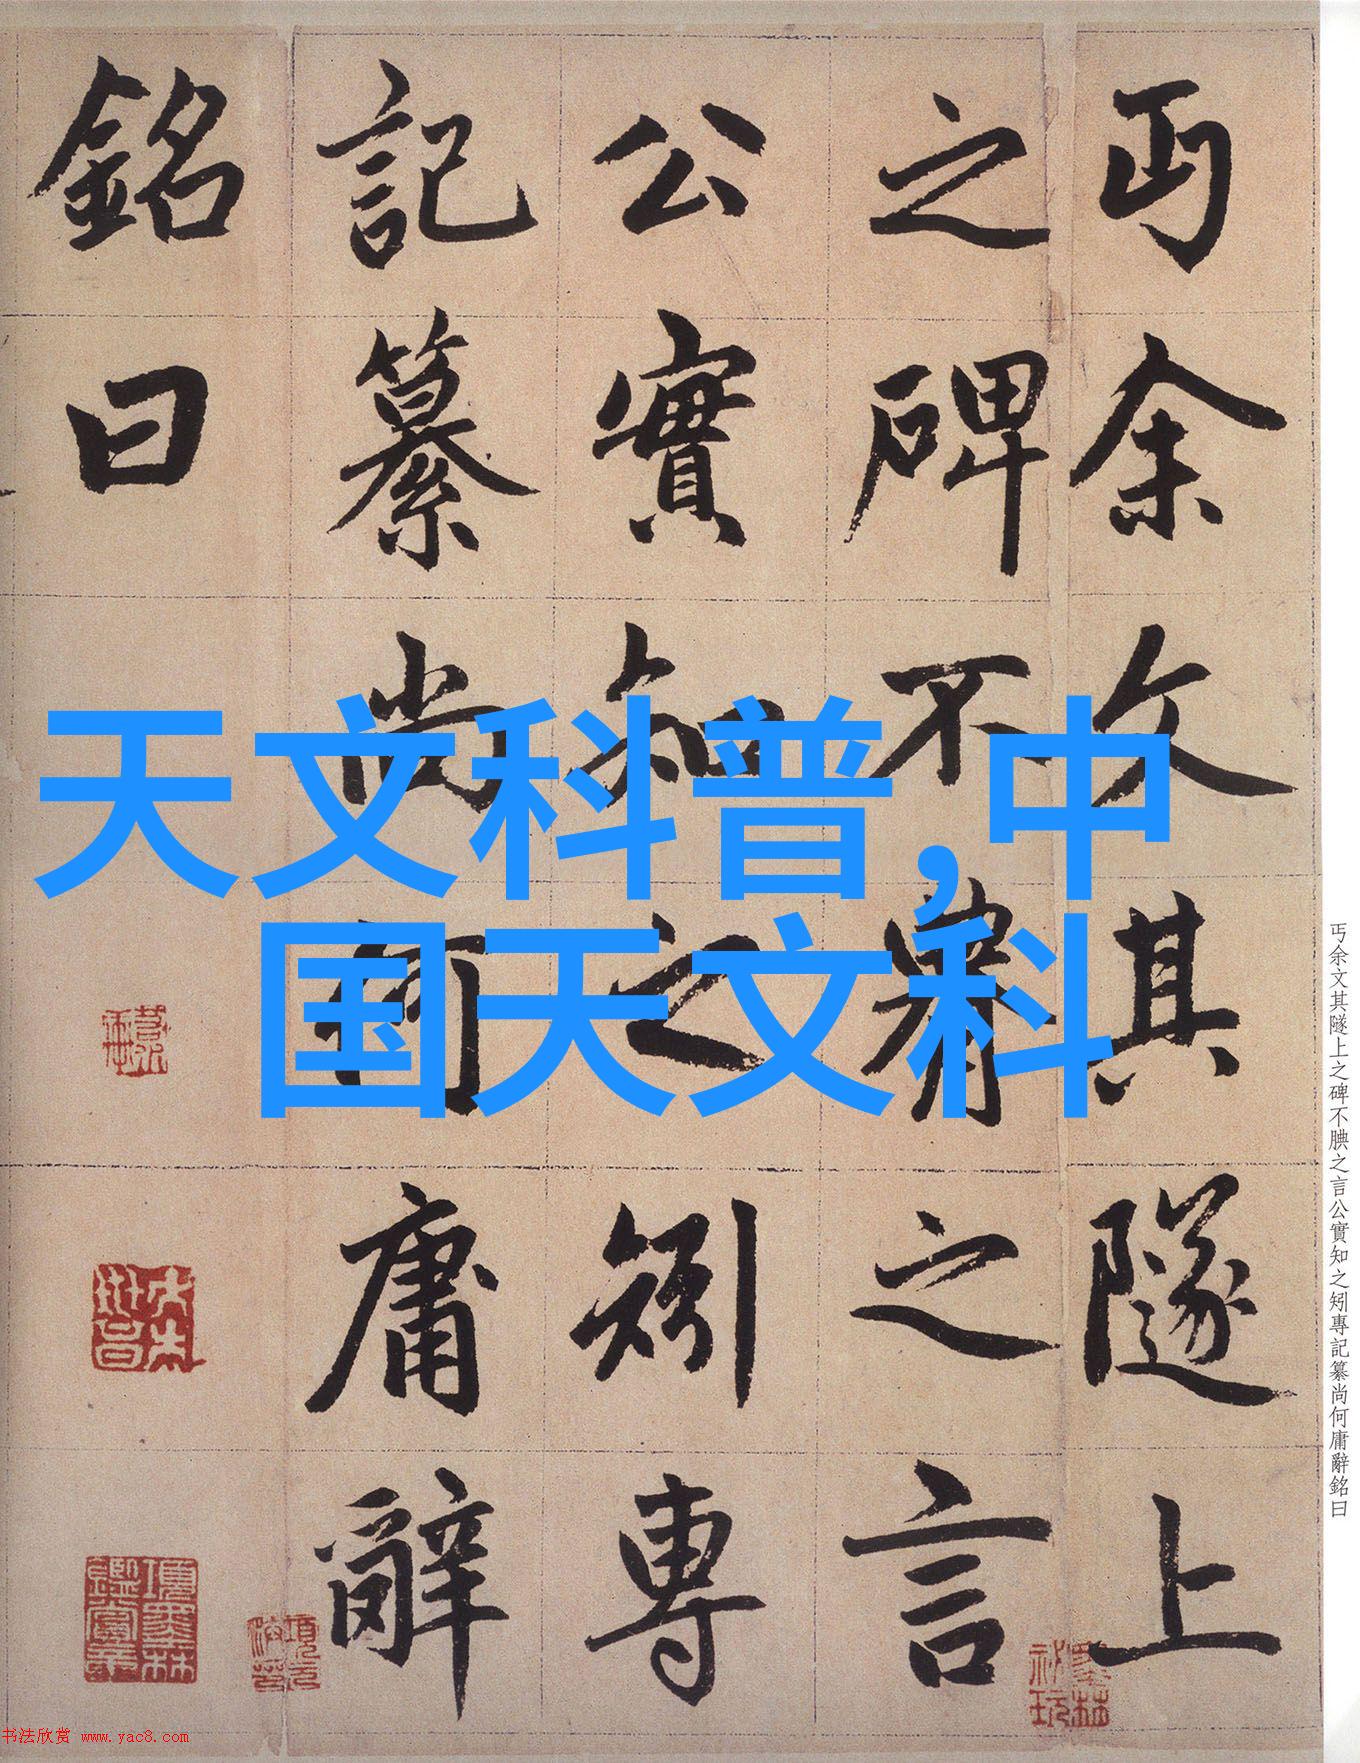 丏余文其隧上
之碑不腆之言
公實知之矧專
記纂尚何庸辭
銘曰
天文科普,中
国天文科
丏余文其隧上之碑不腆之言公實知之矧專記纂尚何庸辭銘曰
书法欣赏 www.yac8.com